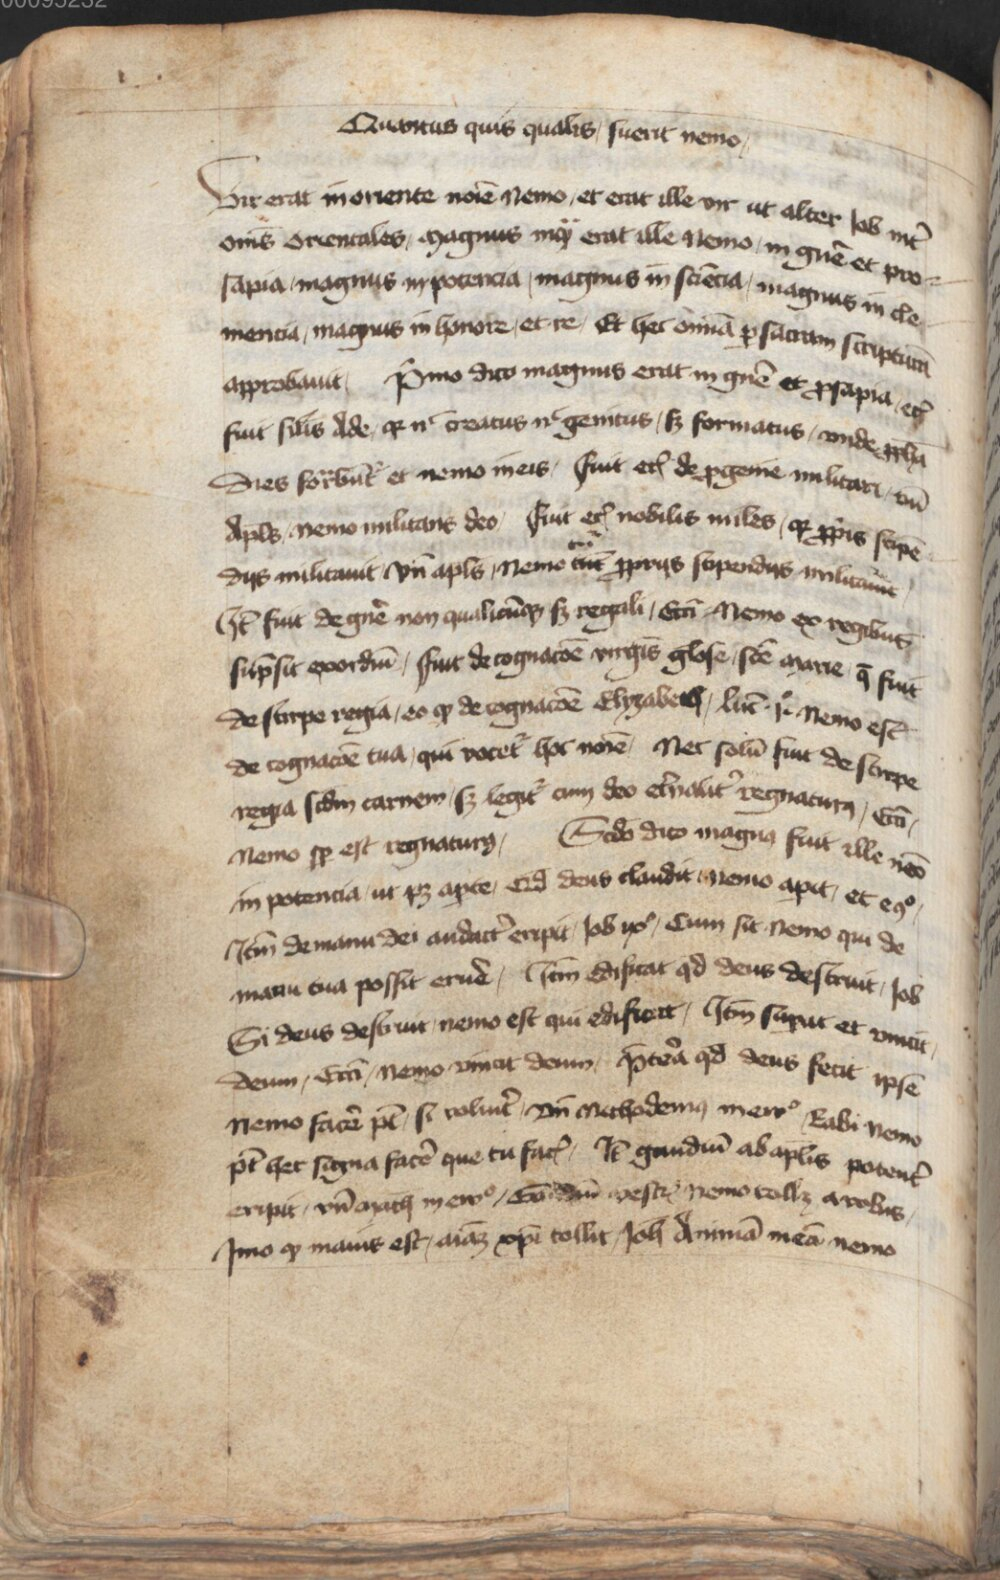 00095232
Quantus quis qualis / fuerit nemo /
Vir erat in oriente noīe Nemo / et erat ille vir ut alter Job int̄
om̄s orientales / Magnus inq̄ erat ille Nemo / in gn̄e et pro=
sapia / magnus in potencia / magnus in sciēcia / magnus in cle
mencia / magnus in honore / et ce / Et hec om̄ia ꝑ sacram scripturā
approbauit / P̄mo dico magnus erat in gn̄e et ꝓsapia / et
fuit sil̄is Ade / qr nͨ creatus nͨ genitus / sꝫ formatus / vnde
Dies for̄bunt̄ et nemo in eis / Fuit et̄ de ꝓgenie militari / vn̄
Apl̄s / nemo militans deo / Fuit et̄ nobilis miles / qr ꝓp̄is stipē
dijs militauit / Vn̄ apl̄s / Nemo ꝓprijs stipendijs militauit /
It̄ fuit de gn̄e non qualicūqꝫ sꝫ regali / Ecc̄i Nemo ex regibus
sūpsit exordiū / Fuit de cognacōe virgīs gl̄ose / sc̄e Marie / q̄ fuit
de stirpe regia / eo ꝙ de cognacōe Elyzabeth / Luc̄ · p̊ · Nemo est
de cognacōe tua / qui vocet̄ hoc noīe / Nec solū fuit de stirpe
regia scd̄m carnem / sꝫ legit̄ cum deo et̄nalit̄ regnaturꝰ / Ecc̄i /
Nemo sp̄ est regnaturꝰ / Scd̄o dico magnꝰ fuit ille nēo
in potencia / ut pꝫ apte / Qd̄ deus claudit / nemo apit / et eͦ9 /
Itm̄ de manu dei audact̄ eripit / Job xͦ / Cum sit nemo qui de
manu tua possit eruē / Itm̄ edificat qd̄ deus destruit / Job
Si deus destruit / nemo est qui edificet / Itm̄ supat et vincit /
deum / Ecc̄i / Nemo vincit deum / P̄teā qd̄ deus fecit ipsē
Nemo facē pt̄ / si voluit̄ / Vn̄ Nichodemꝰ in ewͦ / Rabi nemo
pt̄ hec signa facē que tu fac̄ / It̄ gaudiū ab apl̄is potent̄
eripit / vn̄ Math in ewͦ / Gaudiū vest̄ / nemo tollꝫ a vobis /
Imo ꝙ maius est / aīaꝫ xp̄i tollit / Joh̄ Animā meā nemo